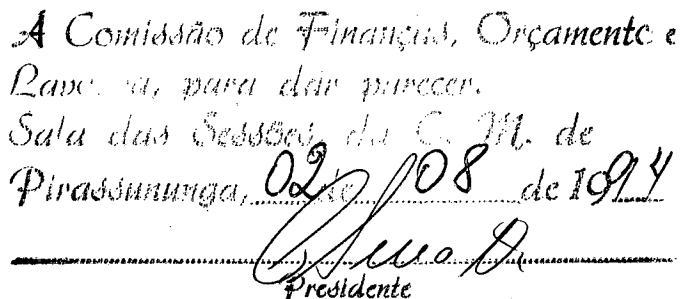 A Comissão de Finanças, Orçamento e
Lavoura, para dar parecer.
Sala das Sessões, da C. M. de
Pirassununga, 02 de 08 de 1994
Presidente